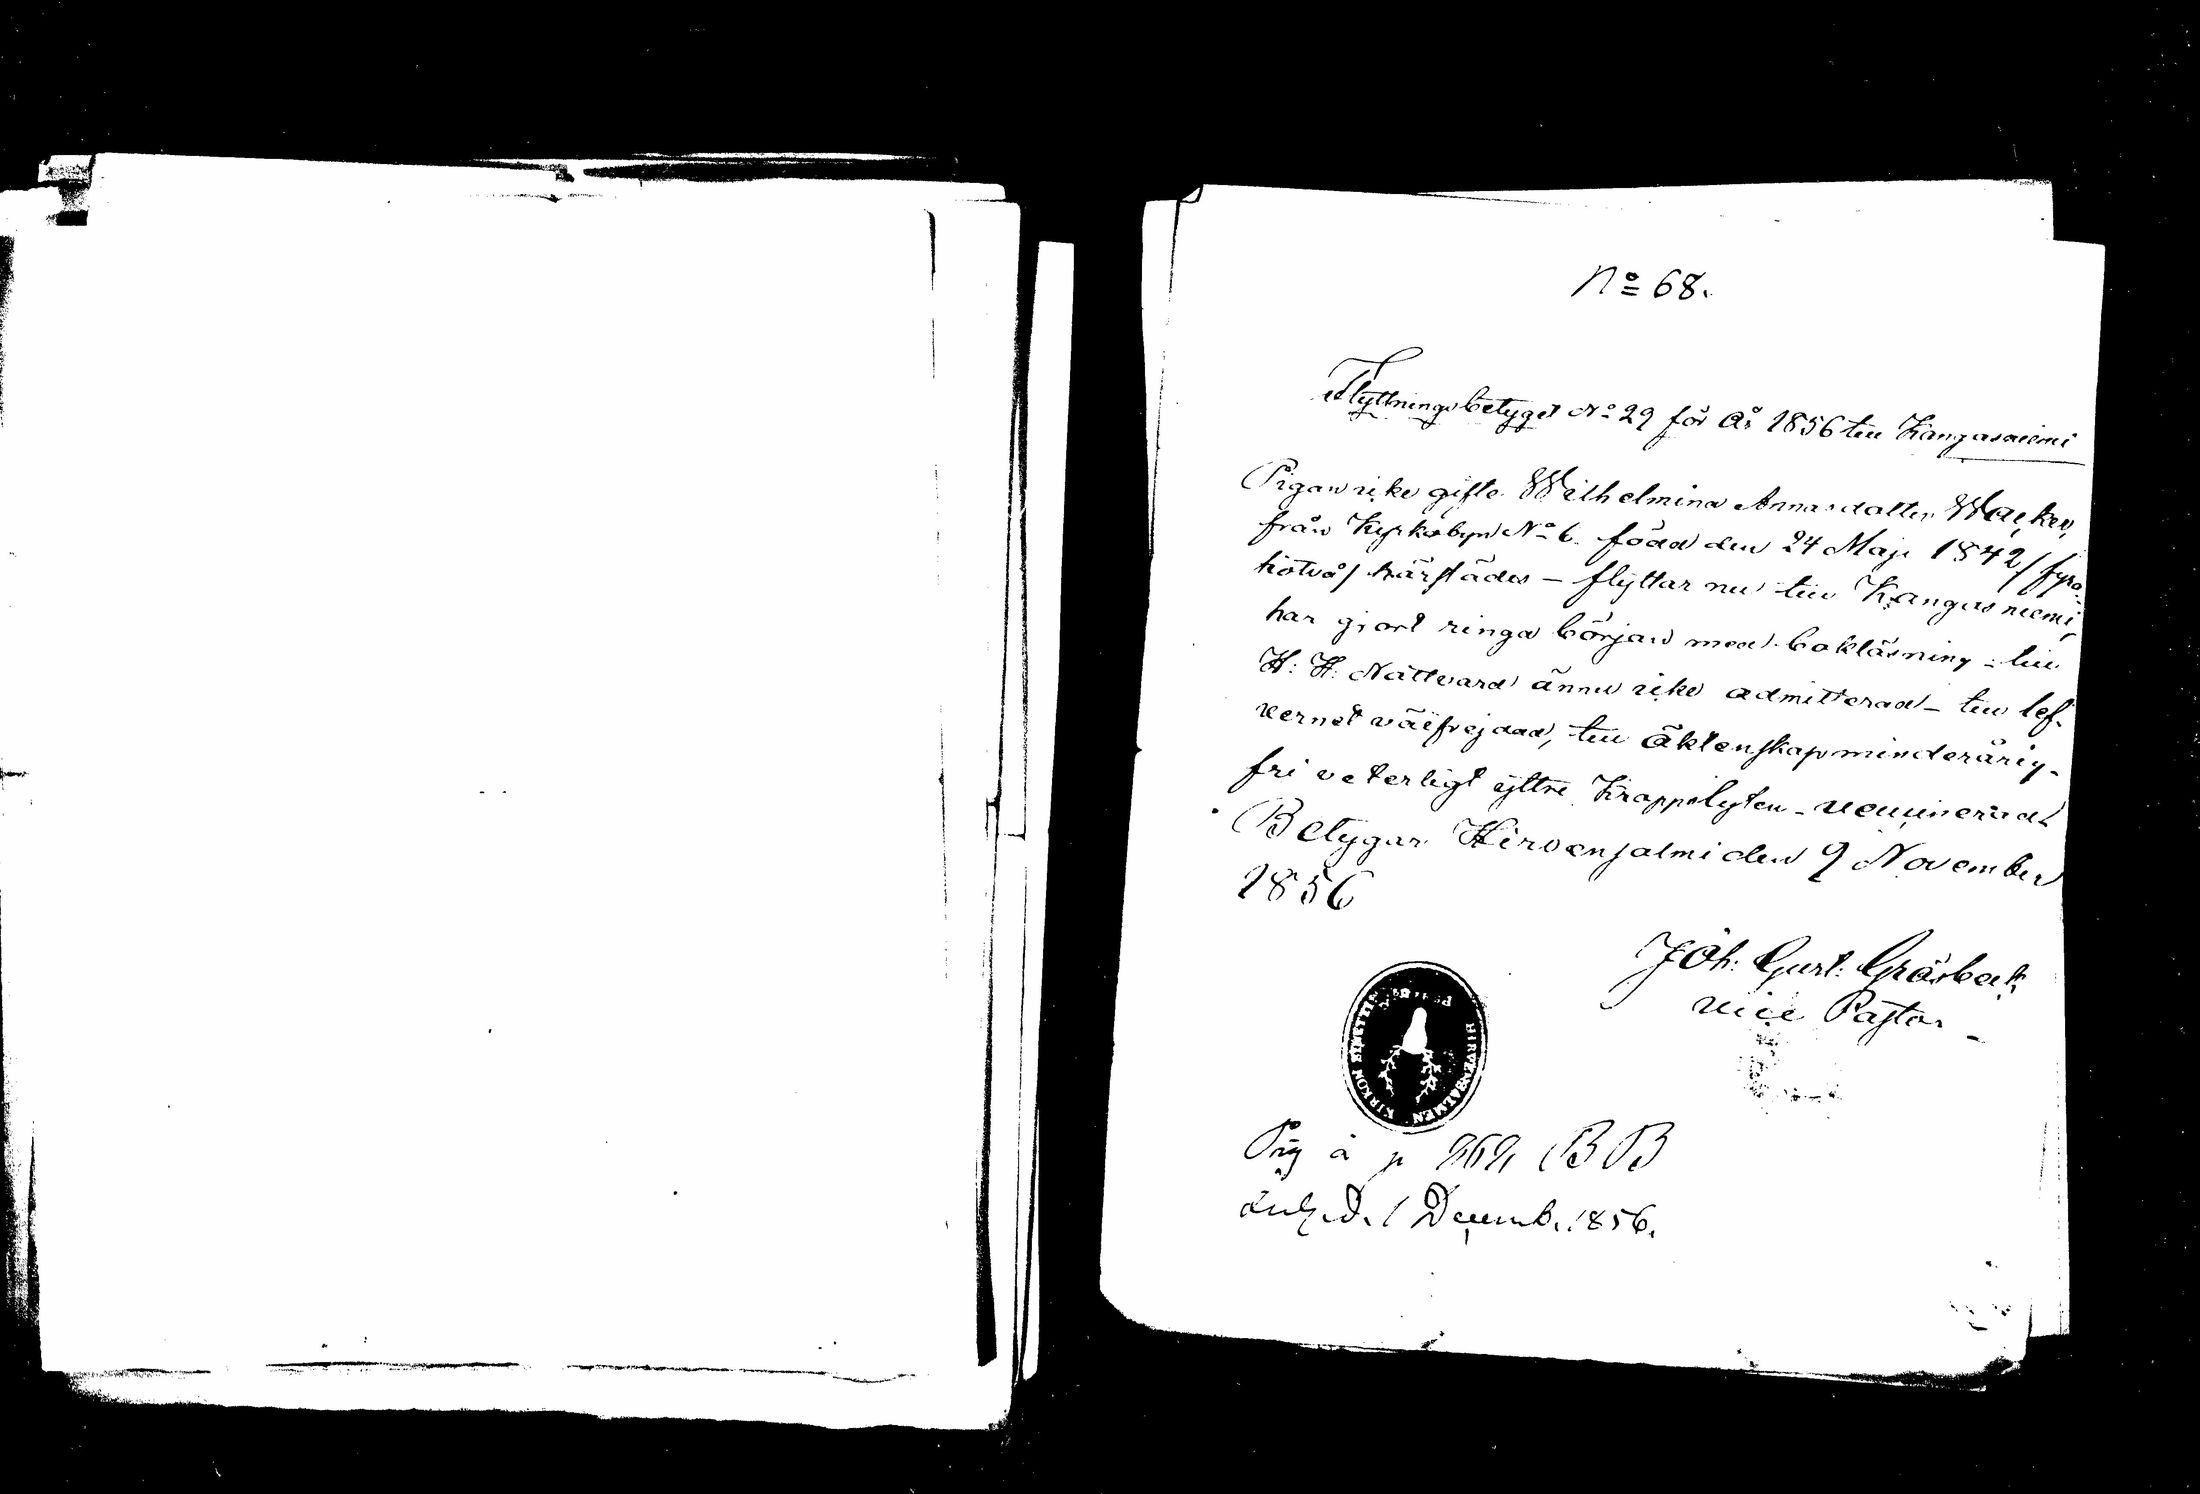 No 68.
Flyttningsbetyget No 29 för År 1856 till Kangasniemi
Pigan icke gifte Wilhelmina Annasdotter
från Kyrkobyn No 6. född den 24 Maji 1842 / fyra-
tiotvå / härstädes – flyttar nu till Kangasniemi,
har gjort ringa början med bokläsning – till
H: H: Nattvard ännu icke admitterad – till lef-
vernet välfrejdad, till äktenskap minderårig –
fri veterligt yttre Kroppslyten – vaccinerad
Betygar Hirvensalmi den 9 November
1856
Joh: Gust:
vice Pastor
KIRKON HIRVENSALMEN
å p BB
d. 1 Decemb. 1856.